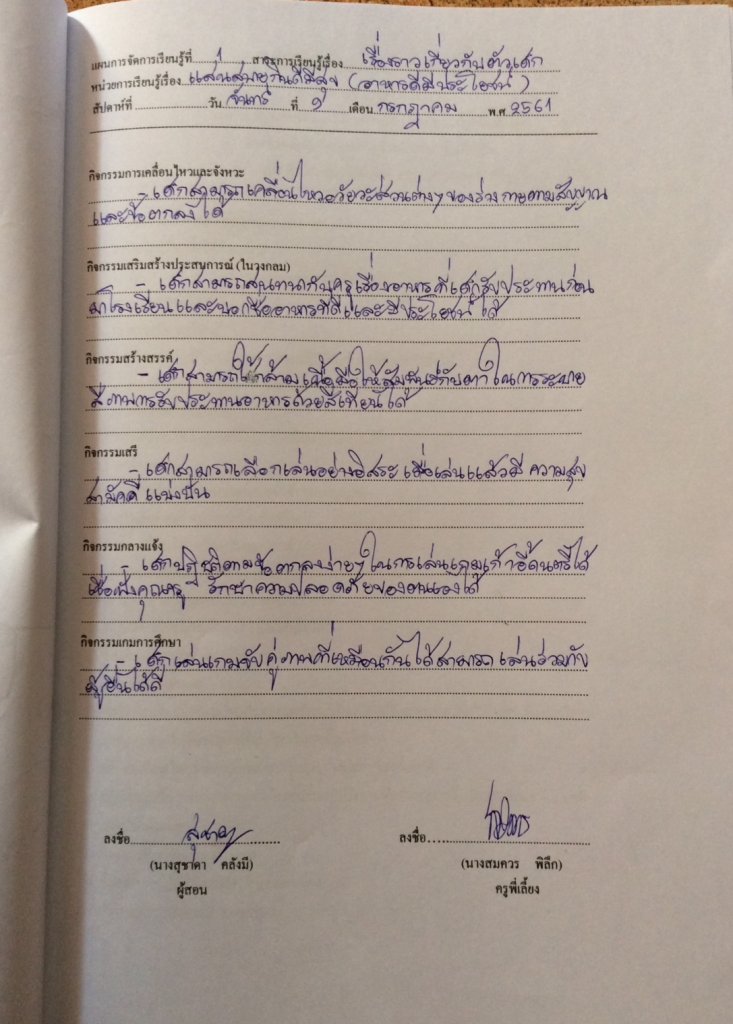 แผนการจัดการเรียนรู้ที่ 1 สาระการเรียนรู้เรื่อง เรื่องราวเกี่ยวกับตัวเด็ก
หน่วยการเรียนรู้เรื่อง เล่นสนุกกินดีมีสุข (อาหารดีมีประโยชน์)
สัปดาห์ที่ วัน จันทร์ ที่ ๑ เดือน กรกฎาคม พ.ศ 2561
กิจกรรมการเคลื่อนไหวและจังหวะ
- เด็กสามารถเคลื่อนไหวอวัยวะส่วนต่างๆ ของร่างกายตามสัญญาณ
และข้อตกลงได้
กิจกรรมเสริมสร้างประสบการณ์ (ในวงกลม)
- เด็กสามารถสนทนากับครูเรื่องอาหารที่เด็กรับประทานก่อน
มาโรงเรียนและบอกชื่ออาหารที่ดีและมีประโยชน์ได้
กิจกรรมสร้างสรรค์
- เด็กสามารถใช้กล้ามเนื้อมือให้สัมพันธ์กับตาในการระบาย
สีภาพการรับประทานอาหารด้วยสีเทียนได้
กิจกรรมเสรี
- เด็กสามารถเลือกเล่นอย่างอิสระ เมื่อเล่นแล้วมีความสุข
สามัคคี แบ่งปัน
กิจกรรมกลางแจ้ง
- เด็กปฏิบัติตามข้อตกลงง่ายๆ ในการเล่นเกมเก้าอี้ดนตรีได้
เชื่อฟังคุณครู รักษาความปลอดภัยของตนเองได้
กิจกรรมเกมการศึกษา
- เด็กเล่นเกมจับคู่ภาพที่เหมือนกันได้สามารถเล่นร่วมกับ
ผู้อื่นได้ดี
ลงชื่อ สุชาดา ลงชื่อ
(นางสุชาดา คลังมี) (นางสมควร พิลึก)
ผู้สอน ครูพี่เลี้ยง